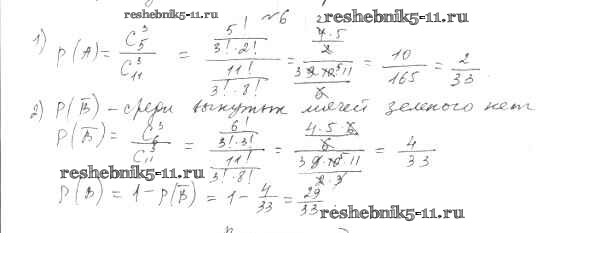 reshebnik5-11.ru
№6 reshebnik5-11.ru
1) P(A) = C₅³ / C₁₁³ = (5! / 3!·2!) / (11! / 3!·8!) = (4·5 / 2) / (3 9·10 5 11 / 6) = 10/165 = 2/33.
2) P(B̅) – среди вынутых мячей зеленого нет
P(B̅) = C₆³ / C₁₁³ = (6! / 3!·3!) / (11! / 3!·8!) = (4·5·6 / 6) / (3 9·10 5 11 / 2·3) = 4/33
reshebnik5-11.ru
P(B) = 1 – P(B̅) = 1 – 4/33 = 29/33
reshebnik5-11.ru